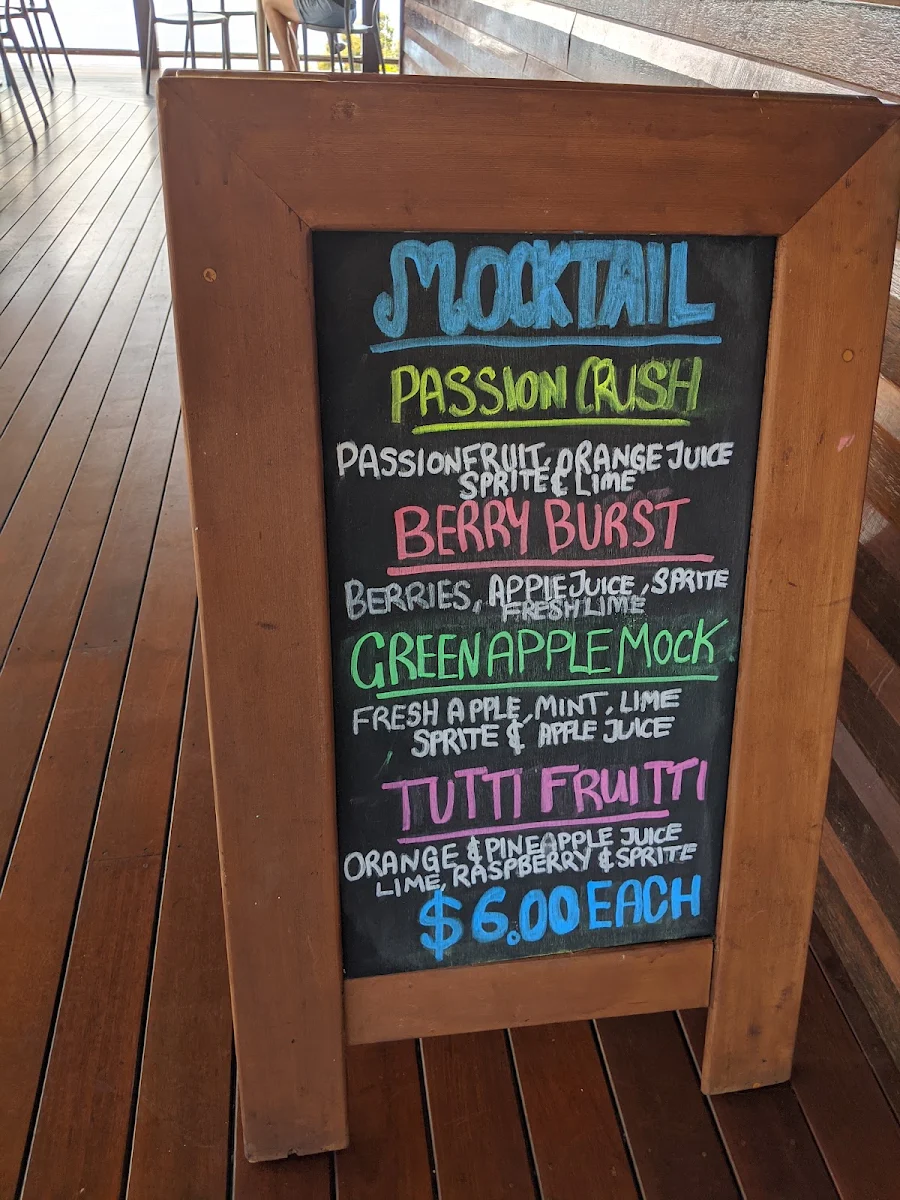 MOCKTAIL
PASSION CRUSH
PASSIONFRUIT, ORANGE JUICE
SPRITE & LIME
BERRY BURST
BERRIES, APPLE JUICE, SPRITE
FRESH LIME
GREEN APPLE MOCK
FRESH APPLE, MINT, LIME
SPRITE & APPLE JUICE
TUTTI FRUITTI
ORANGE & PINEAPPLE JUICE
LIME, RASPBERRY & SPRITE
$6.00 EACH